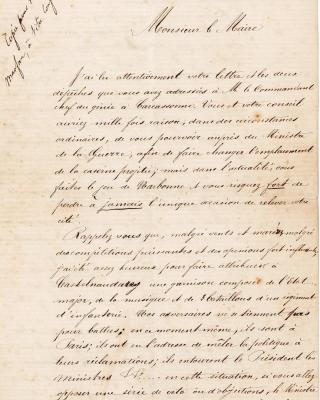 Monsieur le Maire
J'ai lu attentivement votre lettre et les deux
dépêches que vous avez adressées à M. le Commandant
chef du génie à Carcassonne. Vous et votre conseil
auriez mille fois raison, dans des circonstances
ordinaires, de vous pourvoir auprès du Ministre
de la Guerre, afin de faire changer l'emplacement
de la caserne projetée; mais dans l'actualité, vous
faites le jeu de Narbonne et vous risquez fort de
perdre à jamais l'unique occasion de relever votre
cité.
Rappelez vous que, malgré vents et marées, malgré
des compétitions puissantes et des opinions fort
j'ai été assez heureux pour faire attribuer à
Castelnaudary une garnison composée de l'Etat
major, de la musique et de bataillons d'un régiment
d'infanterie. Vos adversaires ne se tiennent pas
pour battus; en ce moment même, ils sont à
Paris; ils ont eu l'adresse de mêler la politique à
leurs réclamations; ils entourent le Président les
ministres en cette situation, si vous allez
opposer une série de veto ou d'objections, le Ministre